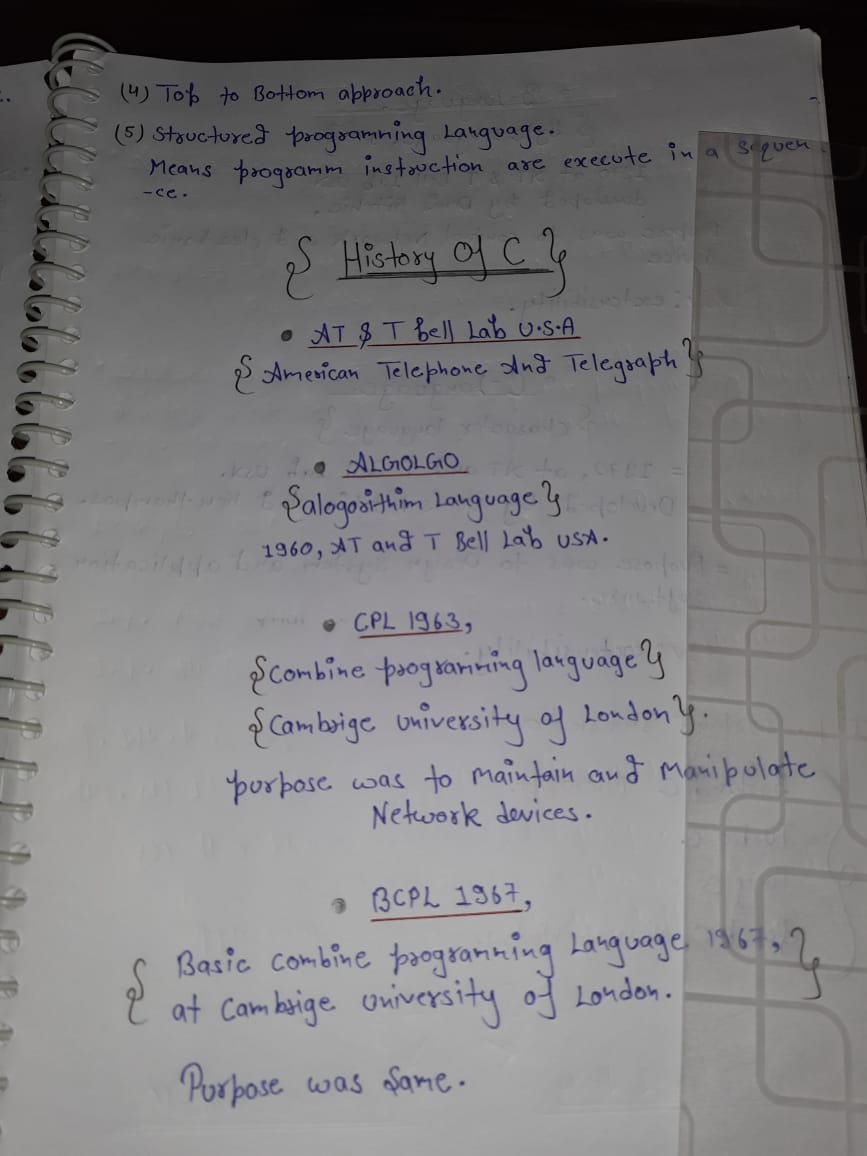 (4) Top to Bottom approach.
(5) Structured programming Language.
Means programm instruction are execute in a sequen
-ce.
{ History Of C }
• AT & T Bell Lab U.S.A
{ American Telephone And Telegraph }
• ALGOLGO
{ alogorithim Language }
1960, AT and T Bell Lab USA.
• CPL 1963,
{ Combine programming language }
{ Cambrige University of London }.
purpose was to maintain and Manipulate
Network devices.
• BCPL 1967,
{ Basic Combine programming Language 1967, }
at Cambrige University of London.
Purpose was Same.